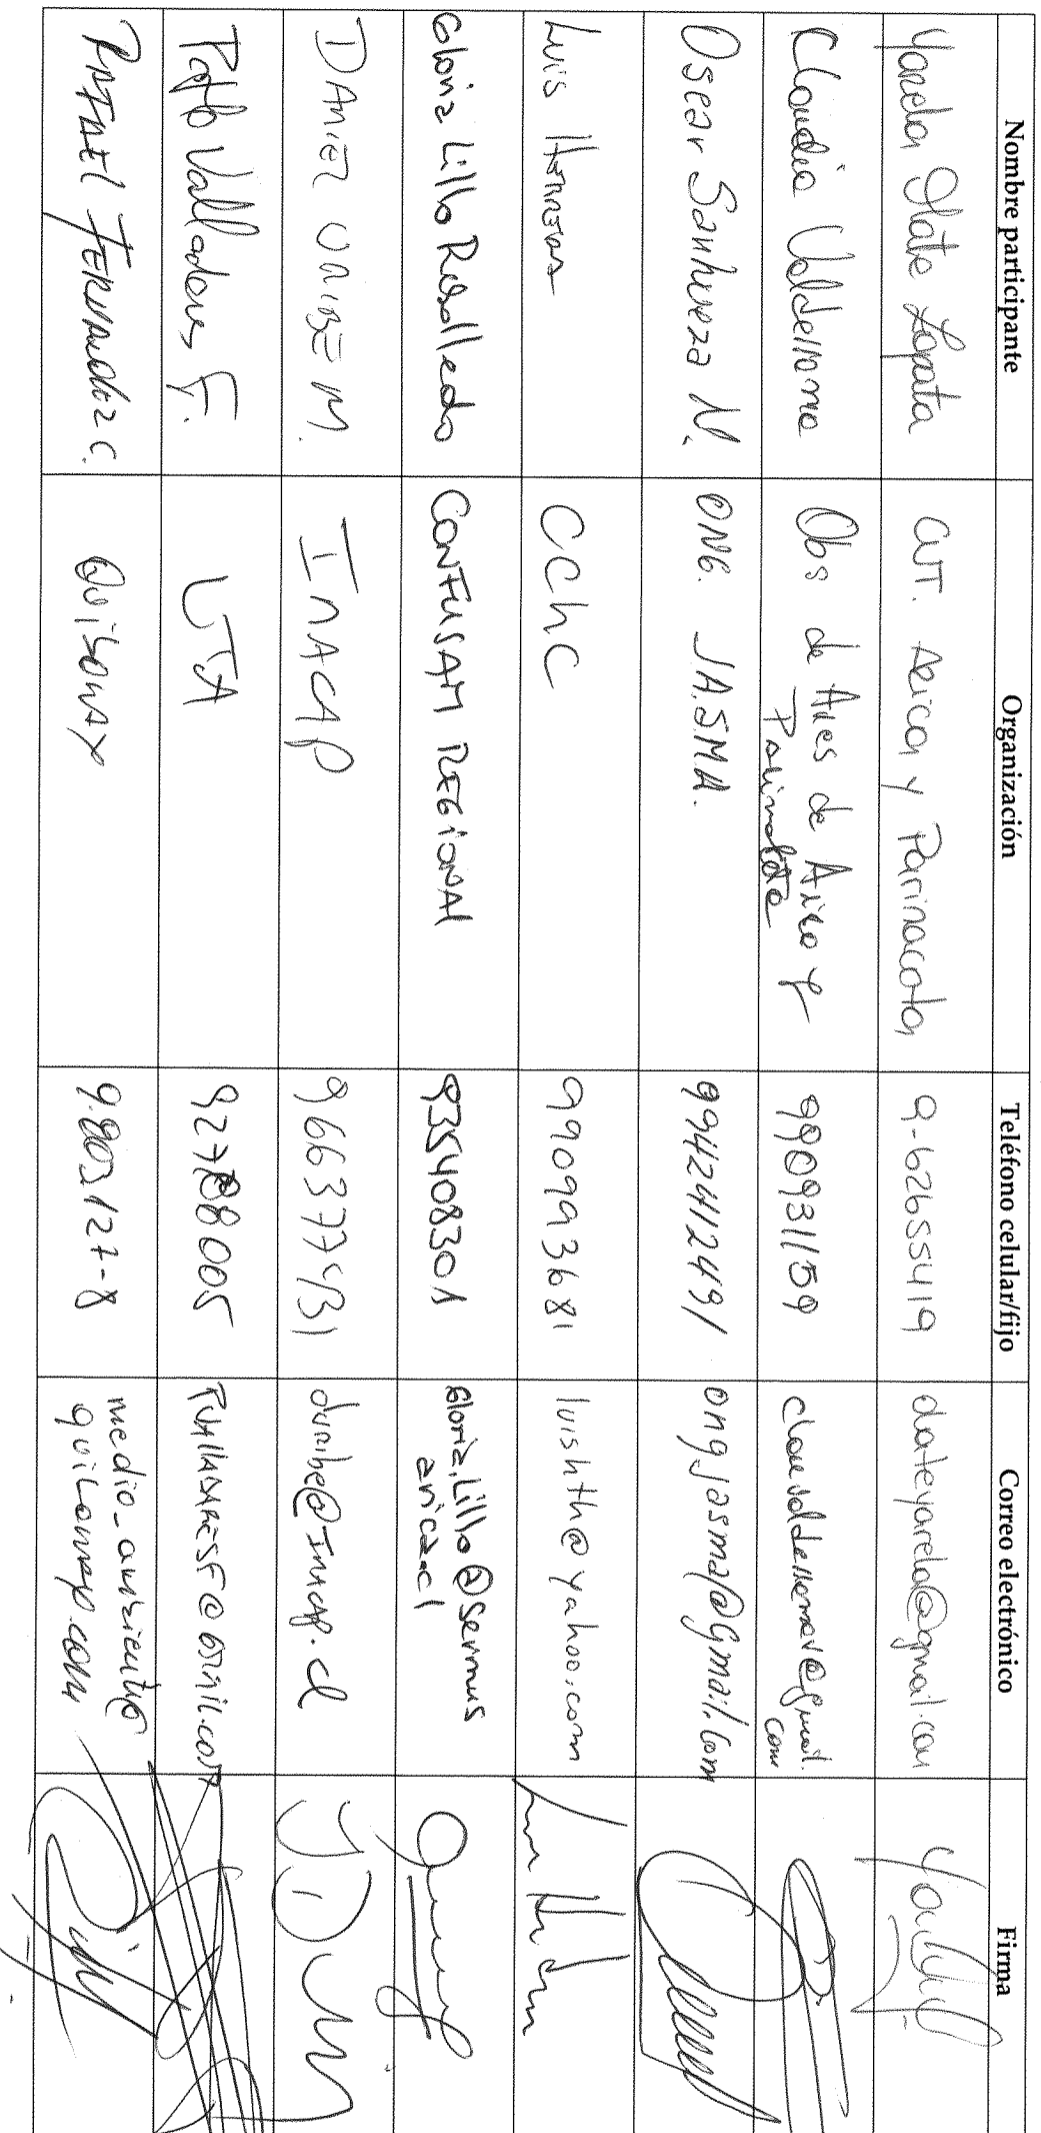 Nombre participante Organización Teléfono celular/fijo Correo electrónico Firma
Yarela Olate Zapata CUT. Arica y Parinacota 9-62655419 olateyarela@gmail.com
Claudia Valderrama Obs de Aves de Arica y 990931159
Parinacota
Oscar Sanhueza N. ONG. JA.S.M.A. 99424112491 ongjasma@gmail.com
Luis CChC 990993681 luishth@yahoo.com
Gloria Lillo Rebolledo CONFUSAM REGIONAL 935408301 Gloria.Lillo@Sermus
arica.cl
DANIEL URIBE M. INACAP 966377431 duribe@Inacap.cl
Pablo Valladares F. UTA 927888005 PVALLADARESF@GMAIL.COM
RAFAEL FERNANDEZ C. QUIBORAX medio_ambiente@
quiborax.com